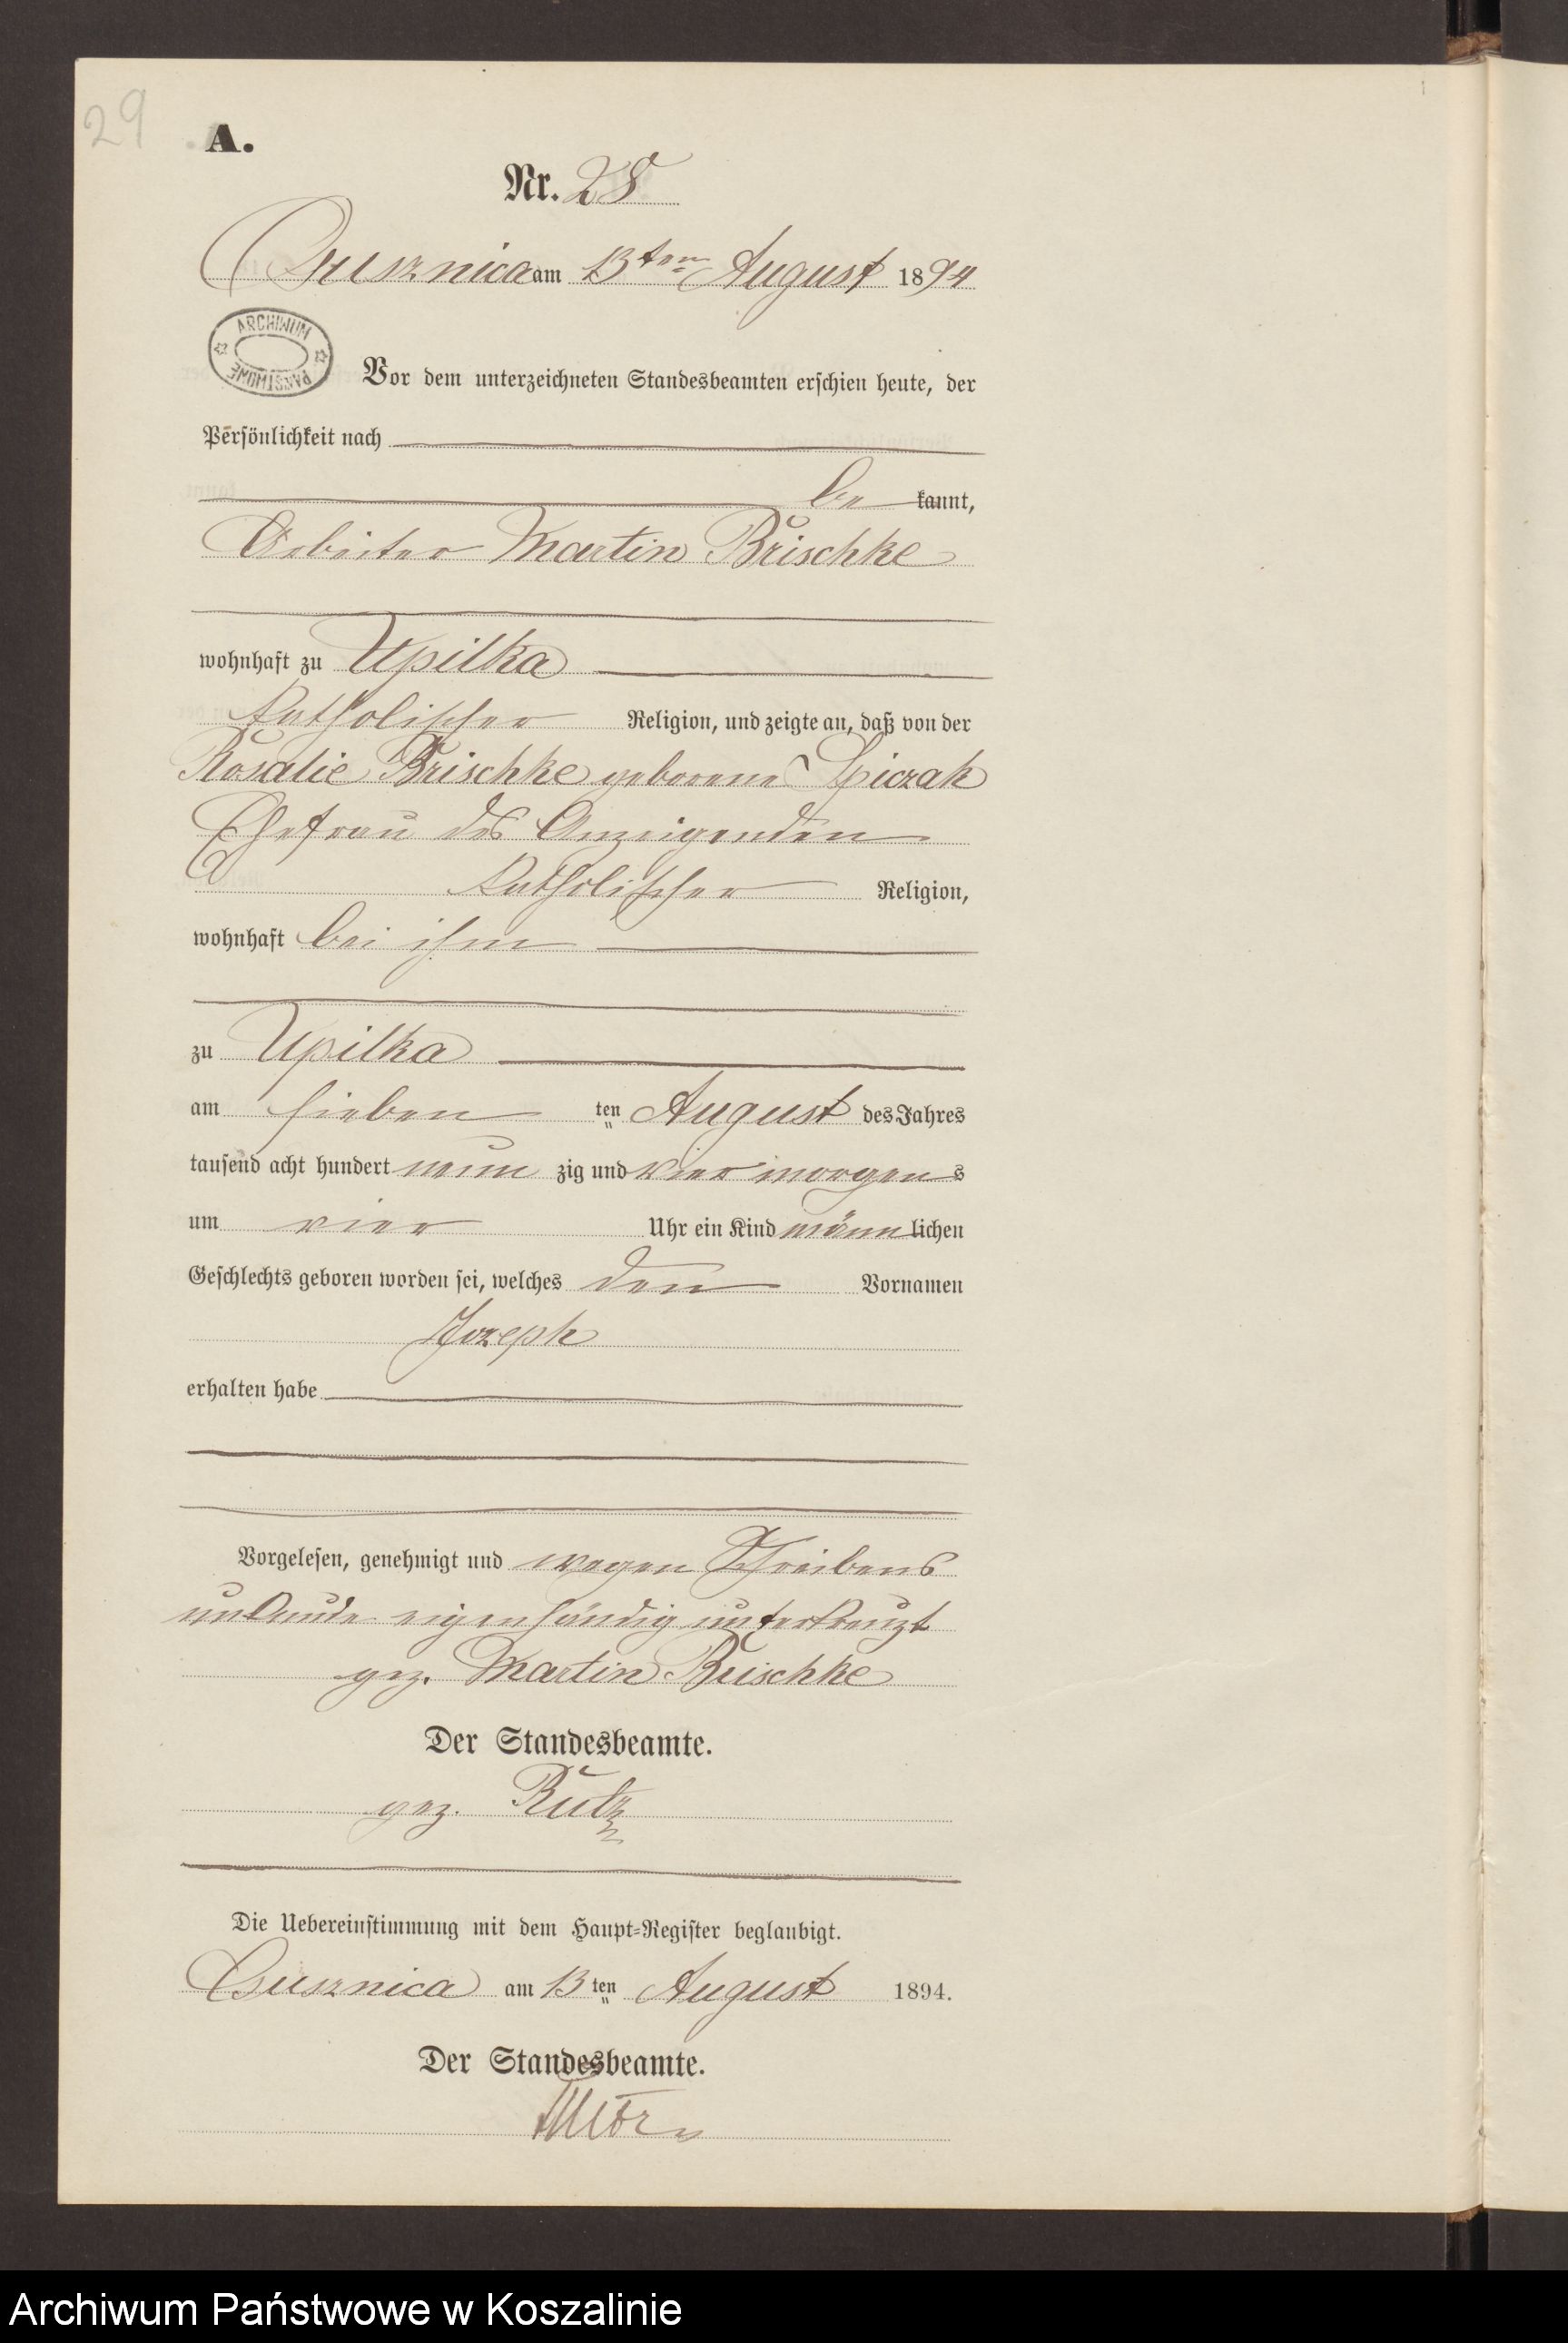 29
A.
Nr. 28
Ossusznica am 13ten August 1894
ARCHIWUM PAŃSTWOWE
Vor dem unterzeichneten Standesbeamten erschien heute, der
Persönlichkeit nach
be kannt,
Arbeiter Martin Brischke
wohnhaft zu Upilka
katholischer Religion, und zeigte an, daß von der
Rosalie Brischke geborene Spiczak
Ehefrau des Anzeigenden
katholischer Religion,
wohnhaft bei ihm
zu Upilka
am sieben ten August des Jahres
tausend acht hundert neun zig und vier morgens
um vier Uhr ein Kind männ lichen
Geschlechts geboren worden sei, welches den Vornamen
Jozeph
erhalten habe
Vorgelesen, genehmigt und wegen Schreibens
unkunde eigenhändig unterkreuzt
gez. Martin Brischke
Der Standesbeamte.
gez. Rutz
Die Uebereinstimmung mit dem Haupt-Register beglaubigt.
am 13 ten August 1894.
Der Standesbeamte.
Archiwum Państwowe w Koszalinie